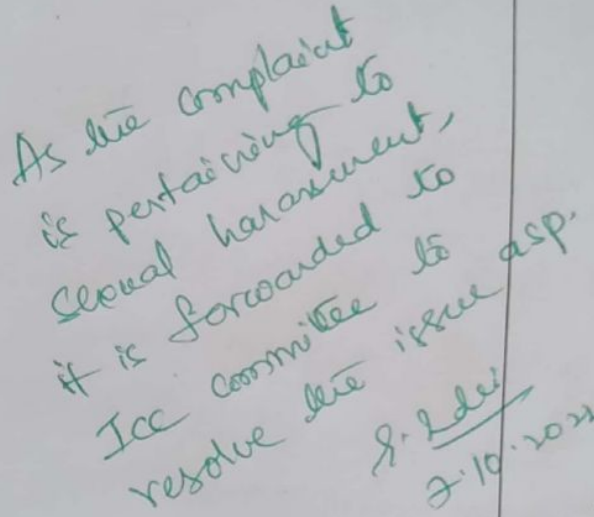 As the complaint
is pertaining to
sexual harassment,
it is forwarded to
Icc committee to
resolve the issue asp.
7.10.202